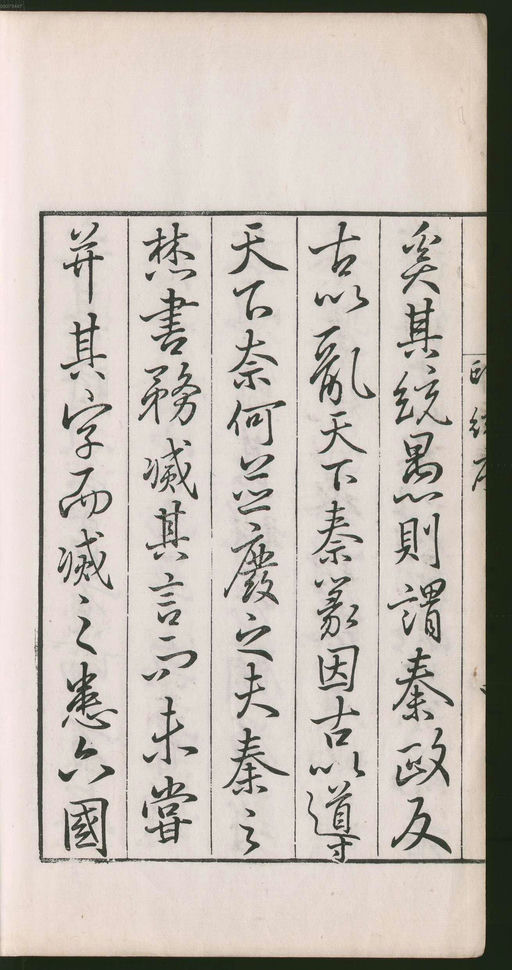 奚其統愚則謂秦政反
古以亂天下秦篆因古以導
天下奈何並廢之夫秦之
焚書務滅其言而未嘗
并其字而滅之悉六國